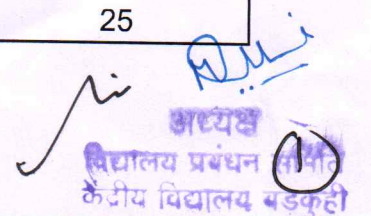 25
अध्यक्ष
विद्यालय प्रबंधन समिति
केंद्रीय विद्यालय बडकुही
1